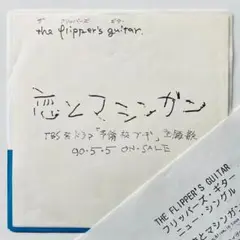 ザ フリッパーズ ギター
the flipper's guitar.
恋とマシンガン
TBS系ドラマ「予備校ブギ」主題歌
90.5.5 ON SALE
THE FLIPPER'S GUITAR
フリッパーズ・ギター
ニュー・シングル
恋とマシンガン